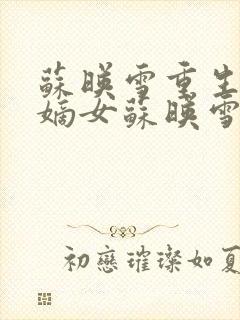 蘇暎雪重生
嫡女蘇暎雪
初戀璀璨如夏